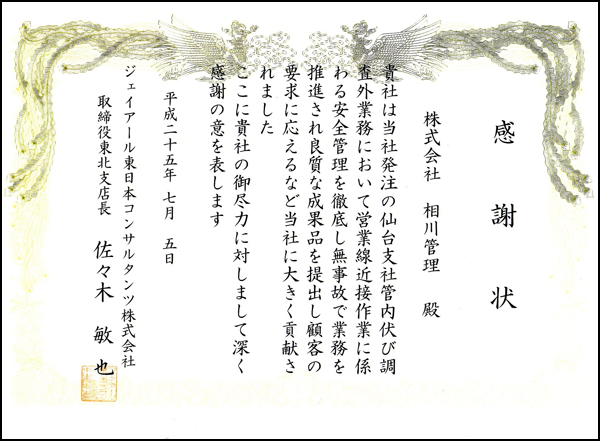 感謝状
株式会社 相川管理 殿
貴社は当社発注の仙台支社管内伏び調
査外業務において営業線近接作業に係
わる安全管理を徹底し無事故で業務を
推進され良質な成果品を提出し顧客の
要求に応えるなど当社に大きく貢献さ
れました
ここに貴社の御尽力に対しまして深く
感謝の意を表します
平成二十五年 七月 五日
ジェイアール東日本コンサルタンツ株式会社
取締役東北支店長 佐々木 敏也